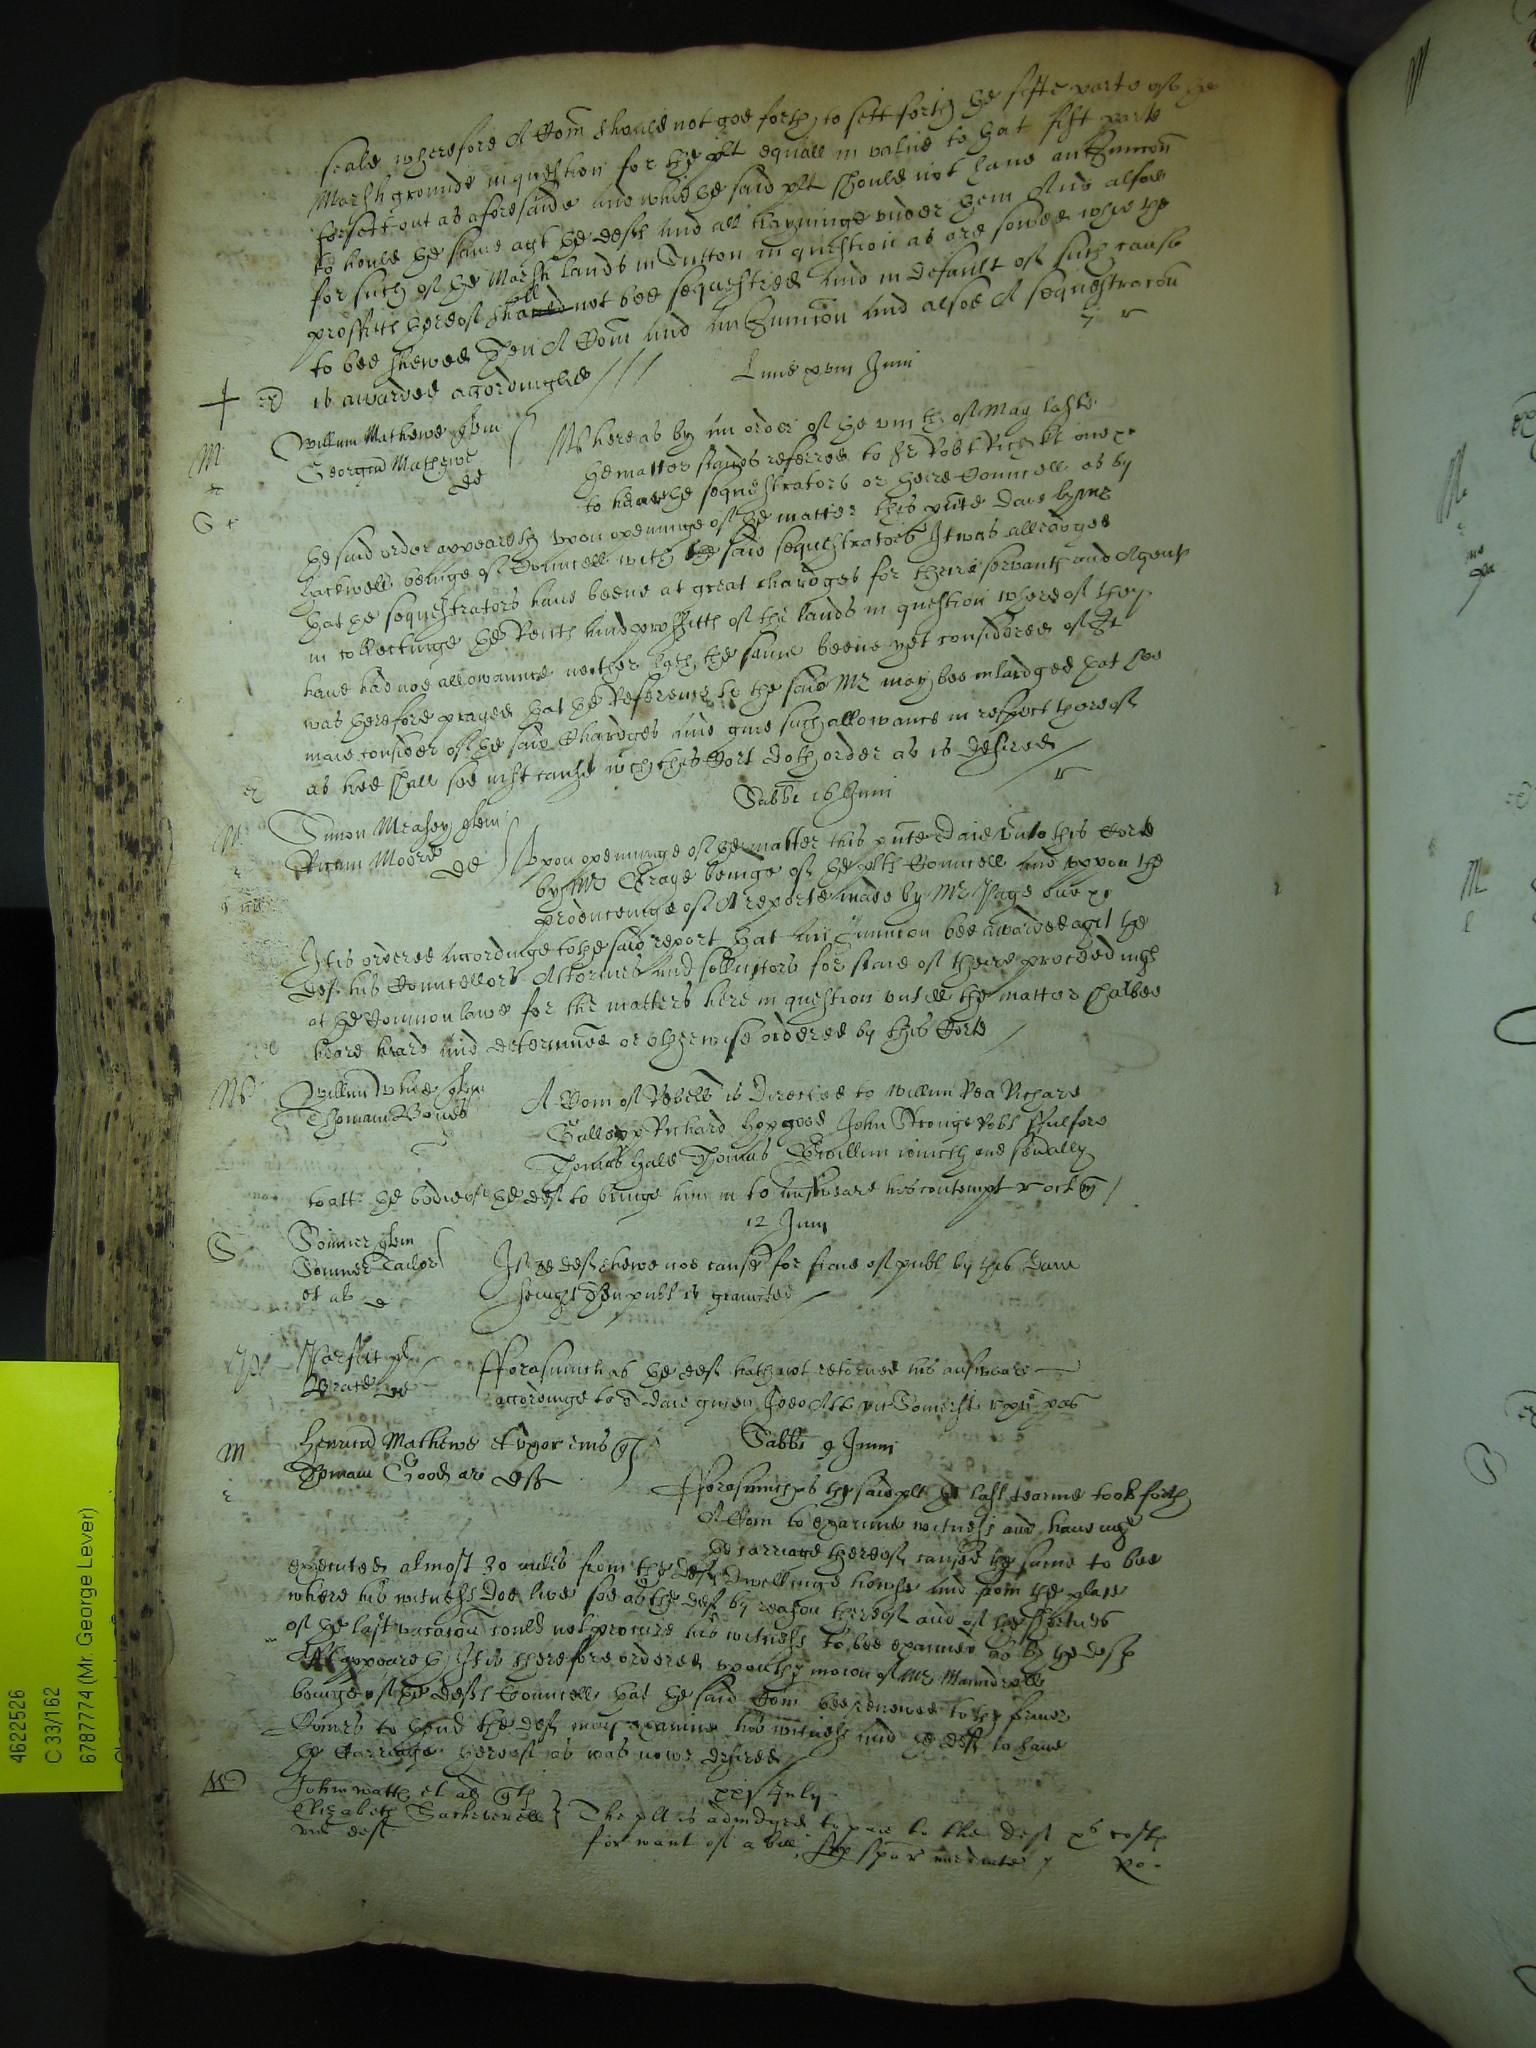 scale wherefore A Com should not goe forth to sett forth the fifte parte of the
Marsh grounds in question for the plt equall in value to that fift parte
sett out as aforesaide and whie the said plt should not have an Iniuncon
to hould the same agt the deft and all clayminge under them And alsoe
for such of the Marsh lands in Sutton in question as are sowed whie the
proffitts thereof shall not bee sequestred And in default of such cause
to bee shewed Then A Com and An Iniuncon and alsoe A sequestracon
is awarded accordinglie
Lune xviii Junii
Willim Mathewe quer
Georgiu Mathewe
de
Whereas by an order of the viiith of May laste
the matter stands referred to Sr Robt Rich kt one &c
to heare the sequestrators or theire Councell as by
the said order appeareth upon openinge of the matter this pnte daie by Mr
Hackwell beinge of Councell with the said sequestrators It was alleadged
that the sequestrators have beene at great chardges for theire servants and Agents
in collectinge the Rents and proffitts of the lands in question whereof they
have had noe allowaunce neither hath the same beene yet considered of It
was therefore prayed that the Reference to the said Mr may bee inlardged that hee
maie consider of the said Chardges and give such allowance in respect thereof
as hee shall see iust cause wch this Cort doth order as is desired
Sabbi 16 Junii
Simon Measey quer
Moore
de
Upon openinge of the matter this pnte Daie unto this Corte
by Mr beinge of the plts Councell and uppon the
producinge of A reporte made by Mr Page one &c
It is ordered accordinge to the said report that An Iniuncion bee awarded agt the
def his Councellors Attornies and sollicitors for staie of theire proceedings
at the Common lawe for the matters here in question untill the matter shalbee
heere heard and determined or otherwise ordered by this Corte
Willim White quer
Thomam
A Com of Rebell is directed to Willim Rea Richard
Gallopp Richard Hopgood John Stronge Robt Fulford
Thomas Hale Thomas Gwillim iointly and severally
to atta the bodie of the def to bringe him in to answeare his contempt r oct
12 Junii
Sommer quer
Sommer Tailor
et al de
If the deft shewe noe cause for staie of publ by this daie
senight Then publ is graunted
Parfitt quer
de
Fforasmuch as the deft hath not returned his answeare
accordinge to daie given Ideo Att
Henricu Mathewe et uxor eius quer
Thomam Goodyare def
Sabbi 9 Junii
Fforasmuch as the said plt the last tearme tooke forth
A Com to examine witnesses and havinge
the carriage thereof caused the same to bee
executed almost 30 miles from the defts dwellinge howse and from the place
where his witnesses doe live soe as the def by reason thereof and of the shortnes
of the last vacacon could not procure his witnesses to bee examined as by the defts
Aff appeareth It is therefore ordered upon the mocion of Mr Maundrell
beinge of the defts Councell that the said Com bee renewed to the former
Comrs to thend the def may examine his witnesses and the deft to have
the Carriage thereof as was nowe desired
xxi July
John Watts et al quer
Elizabeth Sacheverell
vid deft
The plt is adiudged to paie to the deft xs costs
for want of a bill
4622526
C 33/162
6787774 (Mr. George Lever)